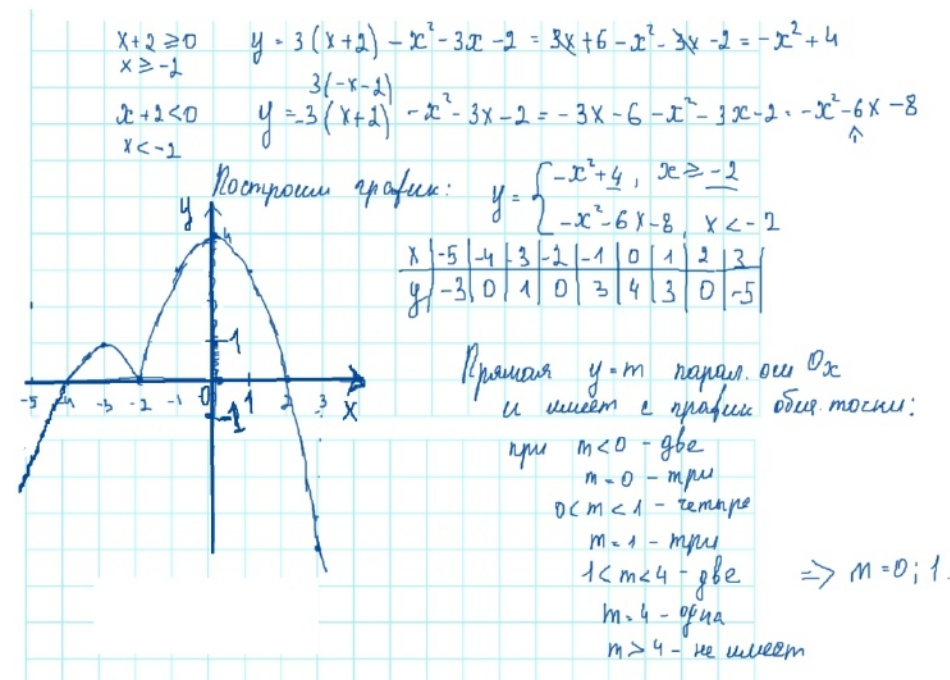 x+2≥0 y = 3(x+2) - x² - 3x - 2 = 3x + 6 - x² - 3x - 2 = -x² + 4
x ≥ -2
3(-x-2)
x+2<0 y = -3(x+2) - x² - 3x - 2 = -3x - 6 - x² - 3x - 2 = -x² - 6x - 8
x < -2
Построим график: y = { -x²+4, x ≥ -2
-x²-6x-8, x < -2
x | -5 | -4 | -3 | -2 | -1 | 0 | 1 | 2 | 3
y | -3 | 0 | 1 | 0 | 3 | 4 | 3 | 0 | -5
y
4
1
-5 -4 -3 -2 -1 0 1 2 3 x
-1
Прямая y = m парал. оси Ox
и имеет с график общ. точки:
при m<0 - две
m = 0 - три
0<m<1 - четыре
m = 1 - три
1<m<4 - две => m = 0; 1.
m = 4 - одна
m > 4 - не имеет